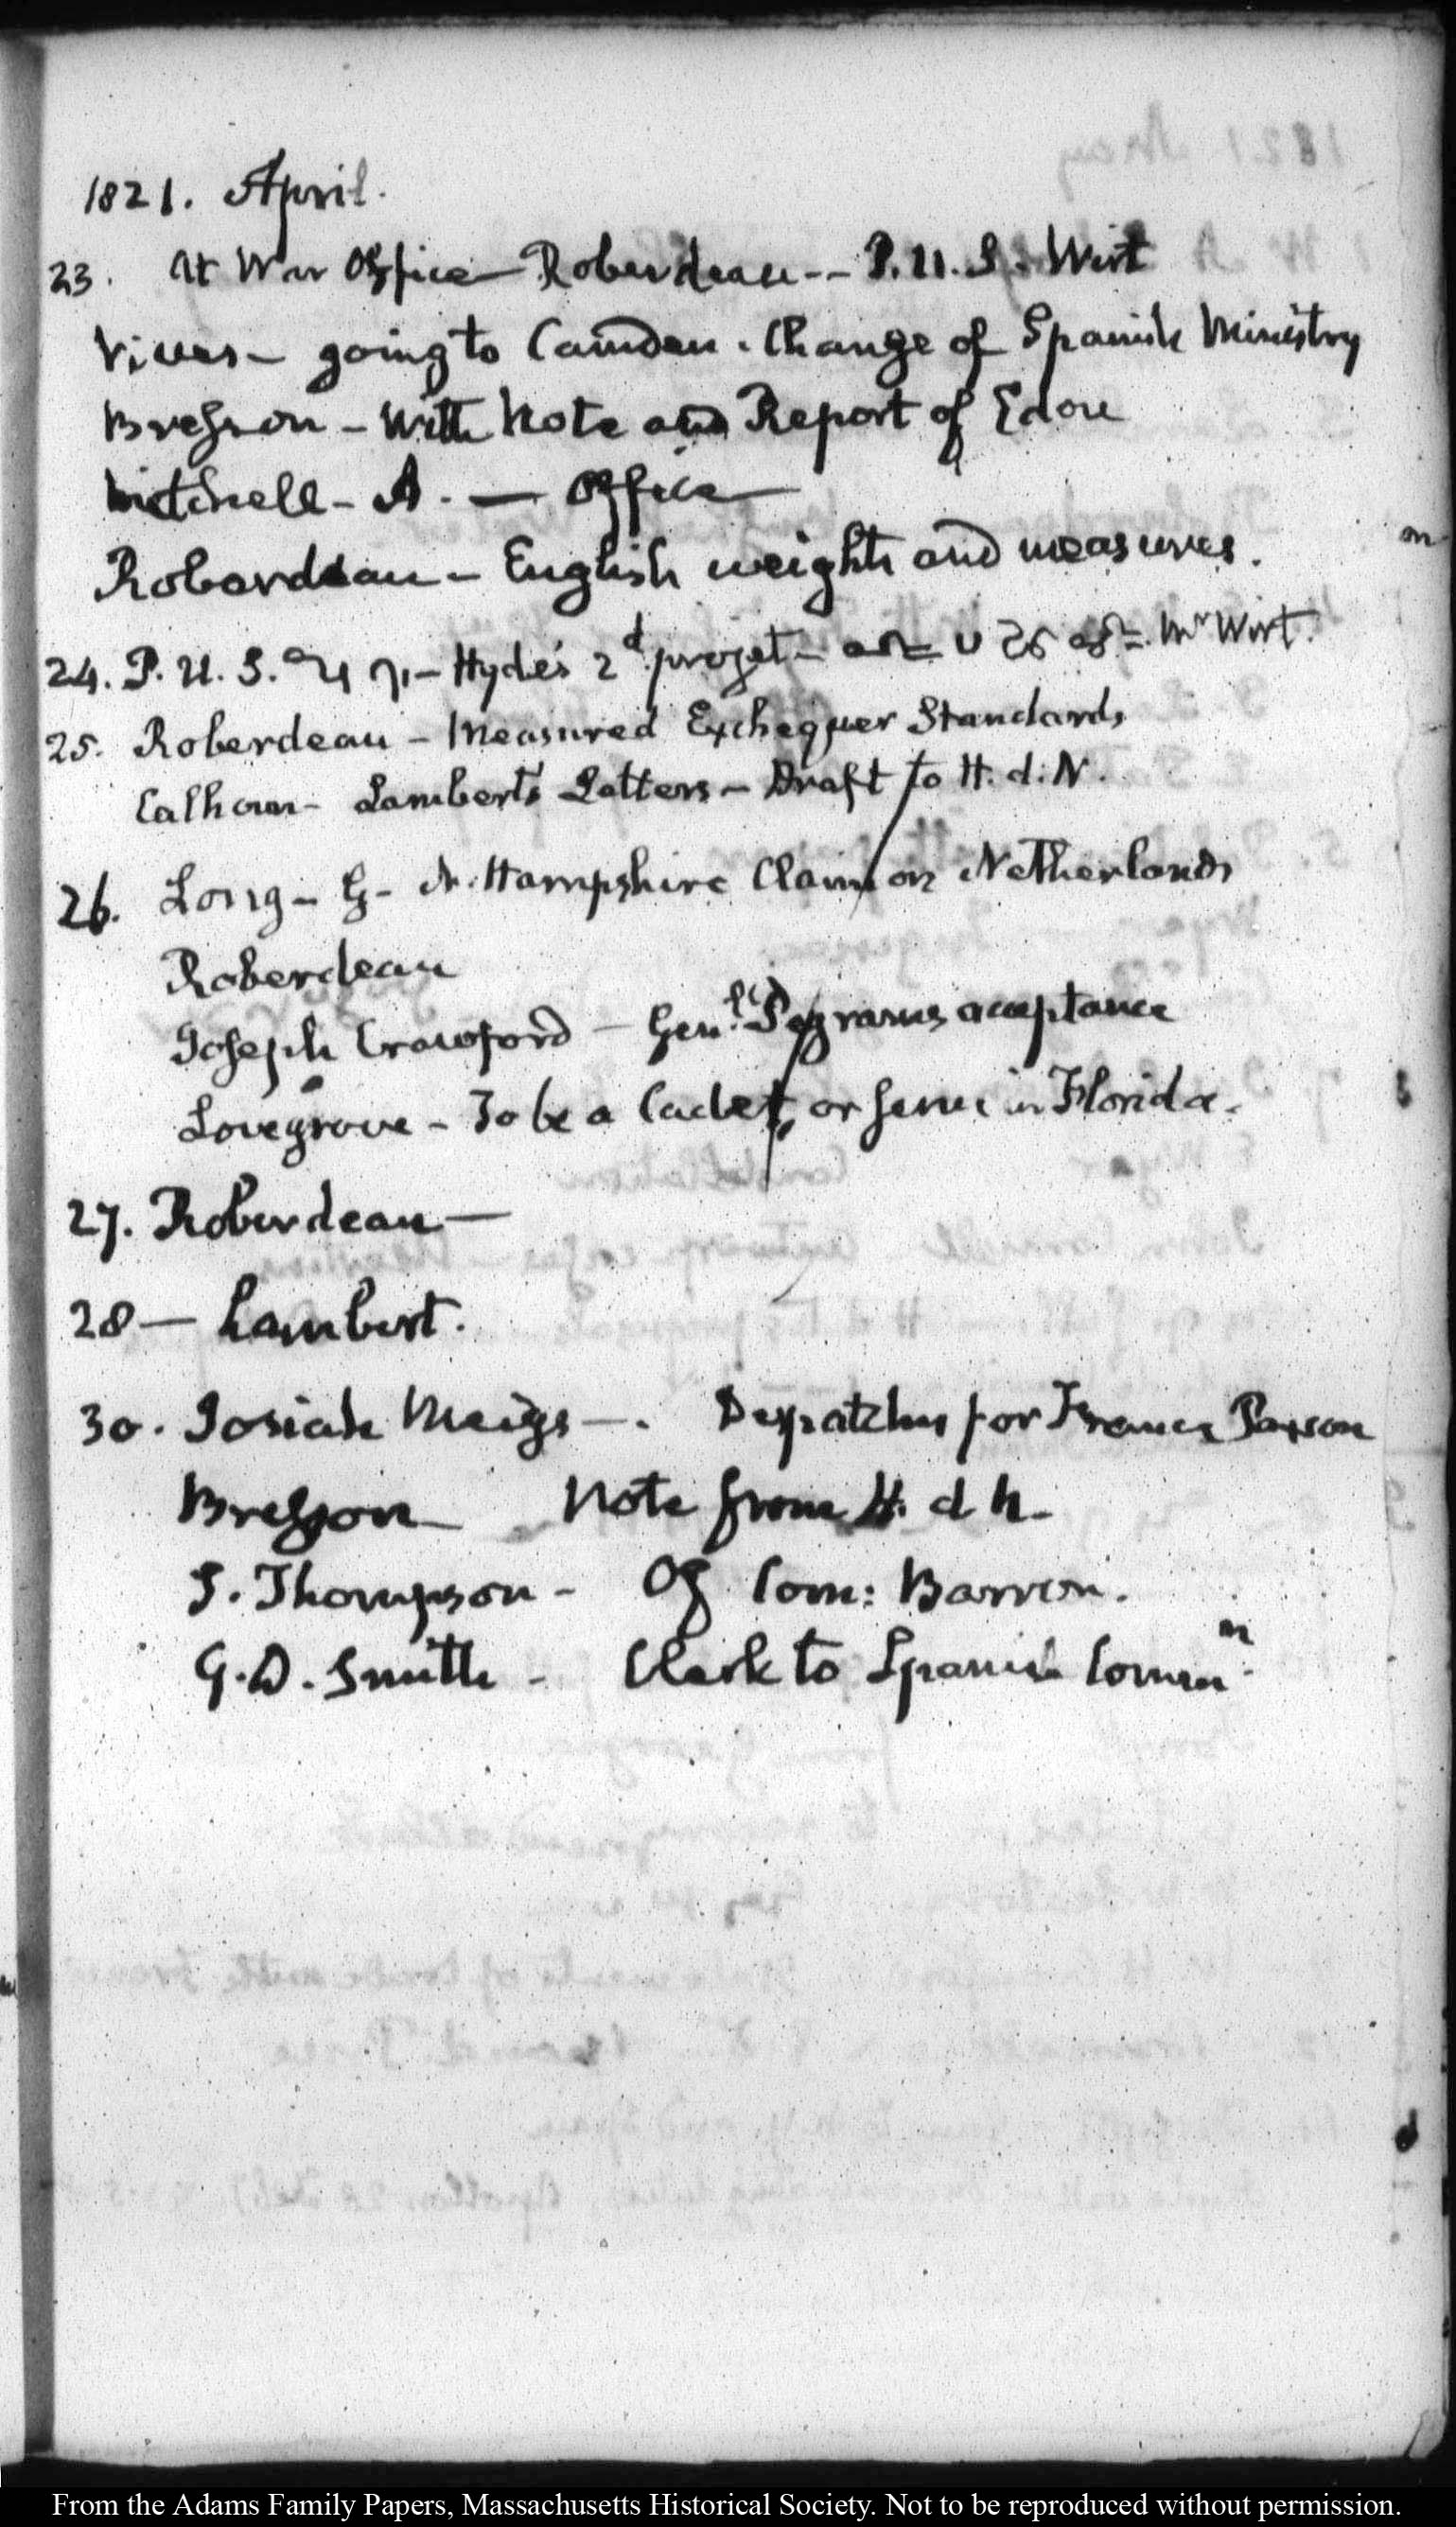 1821. April.
23. At War Office Roberdeau -- P. U. S. Wirt
Vives - going to Camden. Change of Spanish Ministry
Bresson - With Note and Report of Edou
Mitchell - A. — Office
Roberdeau - English weights and measures.
24. P. U. S. - Hyde's 2d projet - Mr Wirt.
25. Roberdeau - Measured Exchequer Standards
Calhoun - Lambert's Letters - Draft to H. d. N.
26. Long - G - N. Hampshire Claim on Netherlands
Roberdeau
Joseph Crawford - Genl. Pegrams acceptance
Lovegrove - To be a Cadet, or serve in Florida.
27. Roberdeau —
28 — Lambert.
30. Josiah Meigs -. Despatches for France Paxson
Bresson Note from H. d N.
S. Thompson - Of Com: Barron.
G. D. Smith - Clerk to Spanish Commn
From the Adams Family Papers, Massachusetts Historical Society. Not to be reproduced without permission.